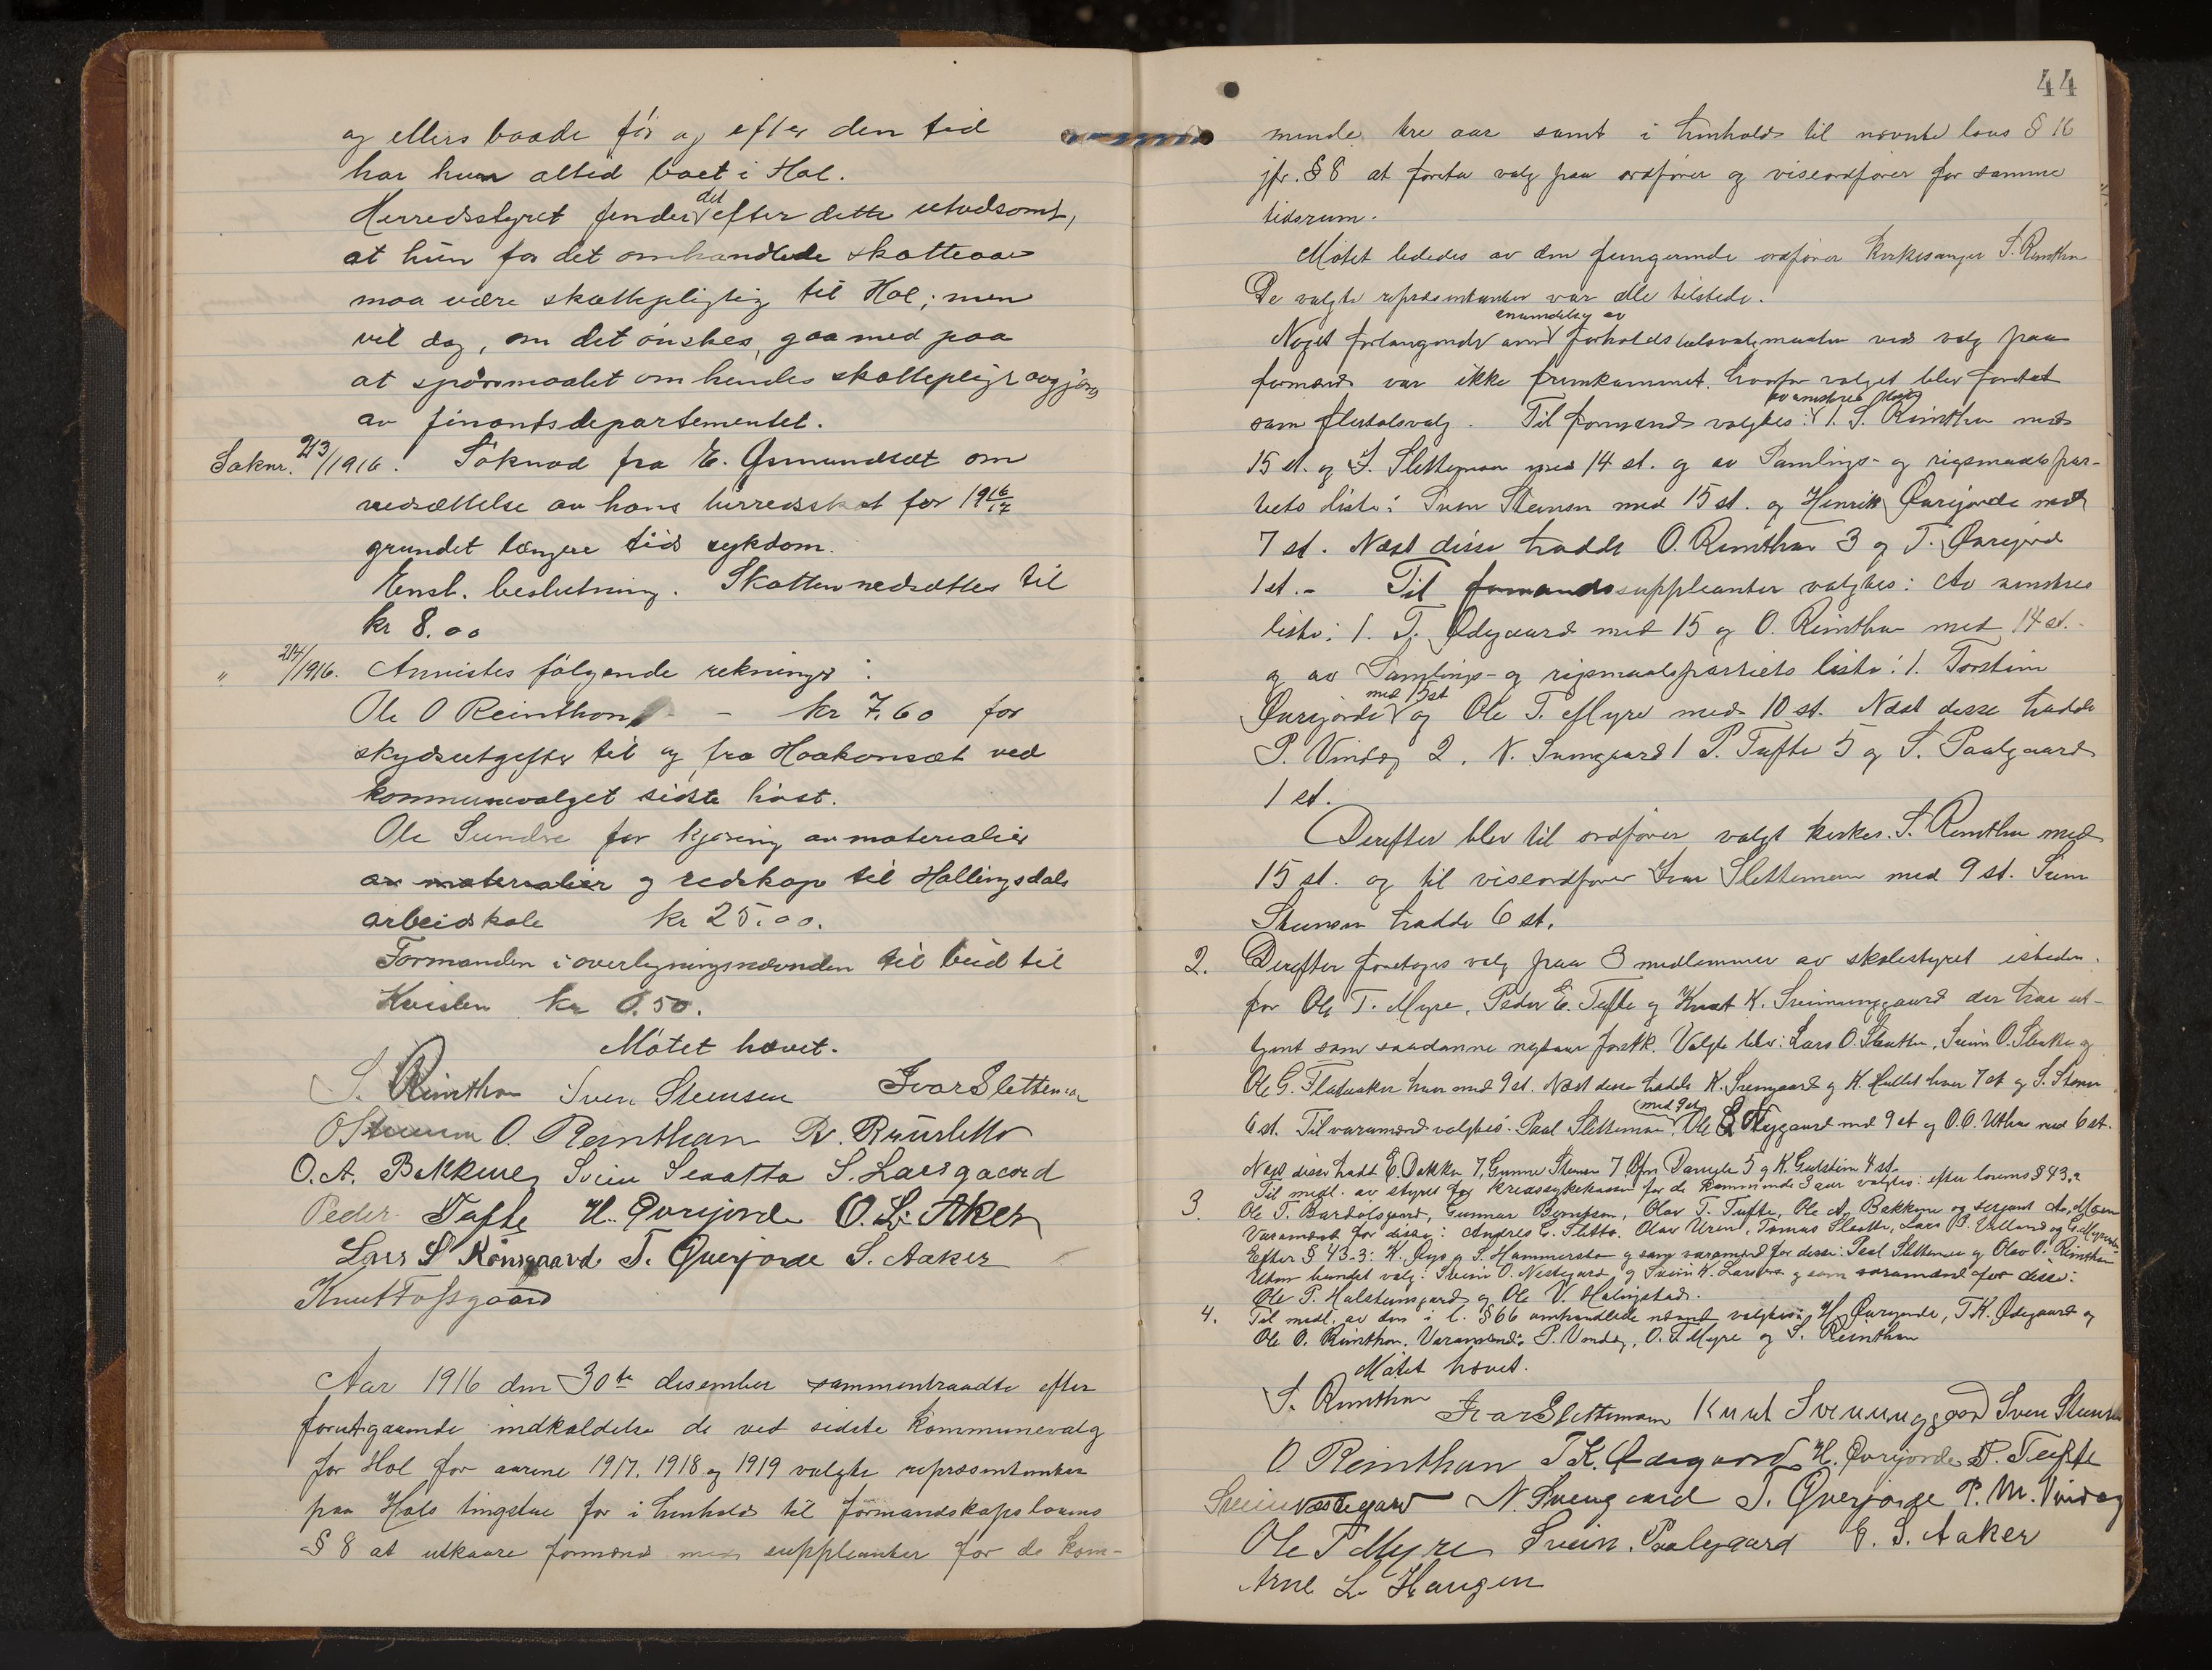 og ellers baade før og efter den tid
har hun altid boet i Hol.
Herredsstyret finder det efter dette utvilsomt,
at hun for det omhandlede skatteaar
maa være skattepligtig til Hol; men
vil dog, om det ønskes, gaa med paa
at spørsmaalet om hendes skattepligt avgjøres
av finantsdepartementet.
Saknr. 213/1916. Søknad fra E. Gsmundsæt om
nedsættelse av hans herredsskat for 1916/17
grundet længere tids sykdom.
Enst. beslutning. Skatten nedsættes til
kr 8.00
" 214/1916. Anvistes følgende rekninger:
Ole O Reinthon - kr 7.60 for
skydsutgifter til og fra Haakonsæt ved
kommunevalget sidste høst.
Ole Sundre for kjøring av materialier
av materialier og redskap til Hallingsdals
arbeidskole kr 25.00.
Formanden i overligningsnævnden til bud til
Kvislen kr 0.50.
Møtet hævet.
S. Reinthon Sven Steinsen Ivar Sletten
O. Reinthon
O. A. Bakkene Svein Slaatta S. Larsgaard
Peder Tufte H. Øvrejorde O. L. Aker
Lars S T. Øverjorde S. Aaker
Knut Fossgaard
Aar 1916 den 30te desember sammentraadte efter
forutgaaende indkaldelse de ved sidste kommunevalg
for Hol for aarene 1917, 1918 og 1919 valgte repræsentanter
paa Hols tingstue for i henhold til formandskapslovens
§ 8 at utkaare formænd med suppleanter for de kom-
44
mende tre aar samt i henhold til nævnte lovs § 16
jfr. § 8 at foreta valg paa ordfører og viseordfører for samme
tidsrum.
Møtet lededes av den fungerende ordfører kirkesanger S. Reinthon
De valgte repræsentanter var alle tilstede.
Noget forlangende om anvendelse av forholdstalsvalgmaaten ved valg paa
formænd var ikke fremkommet, hvorfor valget blev foretat
som flertalsvalg. Til formænd valgtes: av venstres liste 1. S. Reinthon med
15 st. og I. Slettemoen med 14 st. og av Samlings- og rigsmaalspar-
tiets liste: Sven Steinsen med 15 st. og Henrik Øvrejorde med
7 st. Næst disse hadde O. Reinthon 3 og T. Øvrejord
1 st. - Til formandssuppleanter valgtes: Av venstres
liste: 1. T. Ødegaard med 15 og O. Reinthon med 14 st. -
og av Samlings- og rigsmaalspartiets liste: 1. Torstein
Øvrejorde med 15 st og Ole T. Myre med 10 st. Næst disse hadde
P. Vindeg 2, N. Svengaard 1 P. Tufte 5 og S. Paalgaard
1 st.
Derefter blev til ordfører valgt kirkes. S. Reinthon med
15 st. og til viseordfører Ivar Slettemoen med 9 st. Sven
Steinsen hadde 6 st.
2. Derefter foretoges valg paa 3 medlemmer av skolestyret isteden-
for Ole T. Myre, Peder E. Tufte og Knut K. Sveinunggaard der har ut-
tjent som saadanne nytaar førstk. Valgte blev: Lars O. Sleutten, Svein O. Slaatta og
Ole G. Flataaker hver med 9 st. Næst disse hadde K. Svengaard og K. Hallet hver 7 st og S. Steinsen
6 st. Til varamænd valgtes: Paal Slettemoen med 9 st, Ole Nygaard med 9 st og O.O. Uthus med 6 st.
Næst disse hadde E. Bakka 7, Gunnar Steinsen 7 5 og K. 4 st.
3. Til medl. av styret for kredssykekassen for de kommende 3 aar valgtes: efter lovens § 43.2
Ole T. Bardolsgaard, Gunnar Berntson, Olav T. Tufte, Ole A. Bakkene og sersjant A. Moen
Varamænd for disse: Andres E. Sletto, Olav Uren, Tomas Slaatta, Lars P. Villand og G. Myrvold
Efter § 43.3: K. Gys og S. Hammersbø og som varamænd for disse: Paal Slettemoen og Olav O. Reinthon
Uten bundet valg: Svein O. Nestegaard og Svein K. Larsen og som varamænd for disse:
Ole P. Halsteinsgaard og Ole V. Holmgstad.
4. Til medl. av den i l. § 66 omhandlede nævnd valgtes: H. Øvrejorde, T.K. Ødegaard og
Ole O. Reinthon. Varamænd: P. Vindeg, O. T. Myre og S. Reinthon
Møtet hævet.
S. Reinthon Ivar Slettemoen Knut Sveinunggaard Sven Steinsen
O. Reinthon T.K. Ødegaard H. Øvrejorde P. Tufte
Svein Nestegard N. Svengaard T. Øverjorde P. M. Vindeg
Ole T Myre Svein Paalsgaard E. S. Aaker
Arne L. Haugen